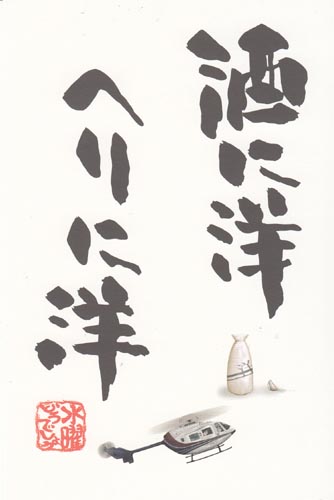 酒に洋
へりに洋
水曜
どうでしょう